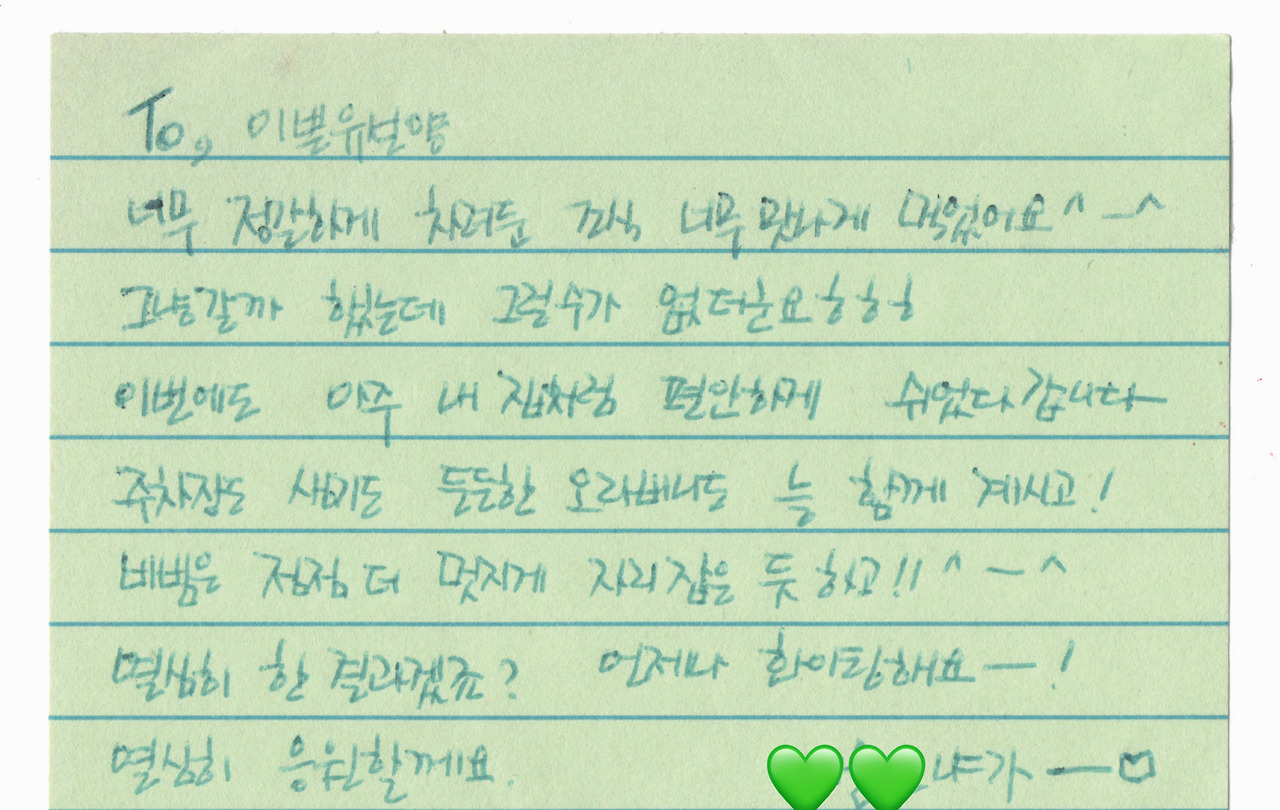 To, 이쁜유선양
너무 정갈하게 차려둔 조식 너무 맛나게 먹었어요^-^
그냥갈까 했는데 그럴수가 없더군요ㅎㅎㅎ
이번에도 아주 내 집처럼 편안하게 쉬었다갑니다~
주차장도 생기도 든든한 오라버니도 늘 함께 계시고!
비범은 점점 더 멋지게 자리잡은 듯 하고!! ^-^
열심히 한 결과겠죠? 언제나 화이팅해요-!
열심히 응원할께요.